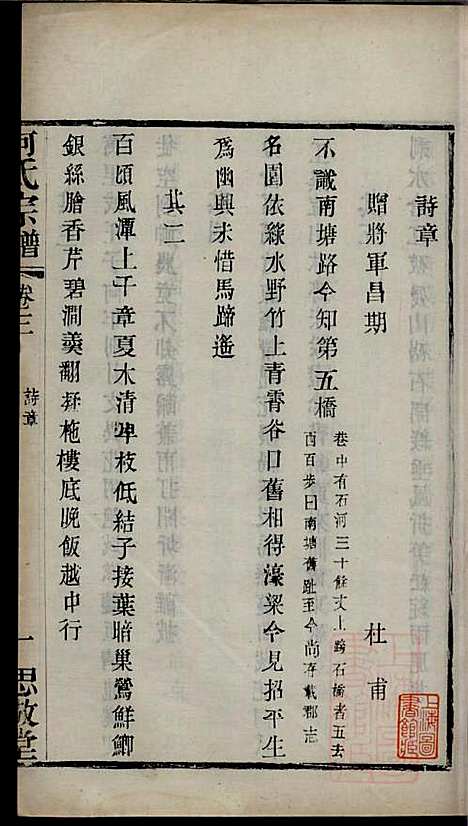 詩章
贈將軍昌期
杜甫
不識南塘路今知第五橋
巷中有石河三十餘丈上跨石橋者五去
西百步曰南塘舊趾至今尚存載郡志
名園依綠水野竹上青霄谷口舊相得濠梁今見招平生
爲幽興未惜馬蹄遙
其二
百頃風潭上千章夏木清卑枝低結子接葉暗巢鶯鮮鯽
銀絲膾香芹碧澗羹翻疑柂樓底晚飯越中行
何氏宗譜
卷三
詩章
一
思敬堂
上海圖
書館藏